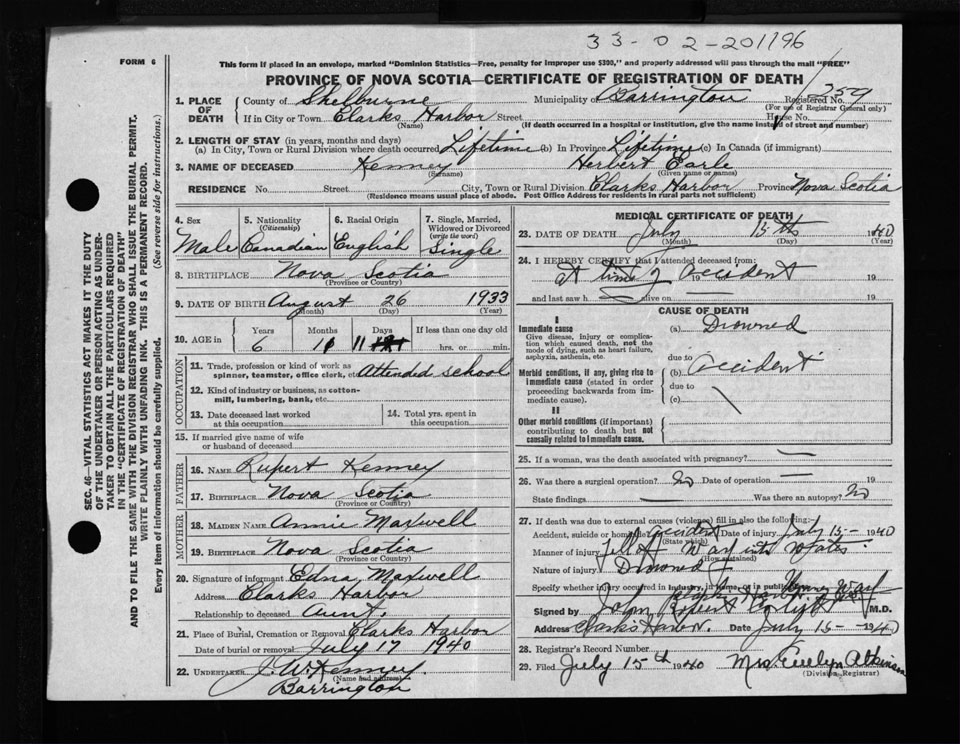 33-02-201196
FORM 6
This form if placed in an envelope, marked "Dominion Statistics—Free, penalty for improper use $300," and properly addressed will pass through the mail "FREE"
PROVINCE OF NOVA SCOTIA—CERTIFICATE OF REGISTRATION OF DEATH
1. PLACE OF DEATH County of Shelburne Municipality Barrington Registered No. 259
(For use of Registrar General only)
If in City or Town Clarks Harbor Street House No.
(Name) (If death occurred in a hospital or institution, give the name instead of street and number)
2. LENGTH OF STAY (in years, months and days)
(a) In City, Town or Rural Division where death occurred Lifetime (b) In Province Lifetime (c) In Canada (if immigrant)
3. NAME OF DECEASED Kenney Herbert Earle
(Surname) (Given name or names)
RESIDENCE No. Street City, Town or Rural Division Clarks Harbor Province Nova Scotia
(Residence means usual place of abode. Post Office Address for residents in rural parts not sufficient)
SEC. 46—VITAL STATISTICS ACT MAKES IT THE DUTY
OF THE UNDERTAKER OR PERSON ACTING AS UNDER-
TAKER TO OBTAIN ALL THE PARTICULARS REQUIRED
IN THE "CERTIFICATE OF REGISTRATION OF DEATH"
AND TO FILE THE SAME WITH THE DIVISION REGISTRAR WHO SHALL ISSUE THE BURIAL PERMIT.
WRITE PLAINLY WITH UNFADING INK. THIS IS A PERMANENT RECORD.
Every item of information should be carefully supplied. (See reverse side for instructions.)
4. Sex Male
5. Nationality (Citizenship) Canadian
6. Racial Origin English
7. Single, Married, Widowed or Divorced (write the word) Single
8. BIRTHPLACE Nova Scotia
(Province or Country)
9. DATE OF BIRTH August 26 1933
(Month) (Day) (Year)
10. AGE in Years Months Days If less than one day old
6 11 hrs. or min.
OCCUPATION
11. Trade, profession or kind of work as spinner, teamster, office clerk, etc. Attended School
12. Kind of industry or business, as cotton-mill, lumbering, bank, etc.
13. Date deceased last worked at this occupation
14. Total yrs. spent in this occupation
15. If married give name of wife or husband of deceased
FATHER
16. NAME Rupert Kenney
17. BIRTHPLACE Nova Scotia
(Province or Country)
MOTHER
18. MAIDEN NAME Annie Maxwell
19. BIRTHPLACE Nova Scotia
(Province or Country)
20. Signature of informant Edna Maxwell
Address Clarks Harbor
Relationship to deceased Aunt.
21. Place of Burial, Cremation or Removal Clarks Harbor
Date of burial or removal July 17 1940
22. UNDERTAKER J. W. Kenney.
(Name and address)
Barrington
MEDICAL CERTIFICATE OF DEATH
23. DATE OF DEATH July 15th 1940
(Month) (Day) (Year)
24. I HEREBY CERTIFY that I attended deceased from:
at time of accident 19 19
and last saw h alive on 19
CAUSE OF DEATH
I
Immediate cause (a) Drowned
Give disease, injury or complication which caused death, not the mode of dying, such as heart failure, asphyxia, asthenia, etc.
due to
Morbid conditions, if any, giving rise to immediate cause (stated in order proceeding backwards from immediate cause). (b) accident
due to
(c)
II
Other morbid conditions (if important) contributing to death but not causally related to immediate cause.
25. If a woman, was the death associated with pregnancy? —
26. Was there a surgical operation? No Date of operation — 19
State findings — Was there an autopsy? No
27. If death was due to external causes (violence) fill in also the following:-
Accident, suicide or homicide accident Date of injury July 15- 1940
(State which)
Manner of injury Fell off Warf into
(How sustained)
Nature of injury Drowned
Specify whether injury occurred in industry, in home, or in public Warf
Signed by John M.D.
Address Clarks Harbor Date July 15- 1940
28. Registrar's Record Number
29. Filed July 15th 1940 Mrs. Evelyn Atkinson
(Division Registrar)